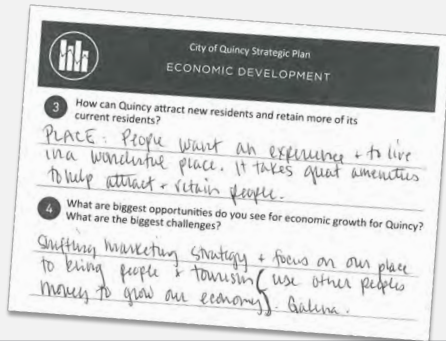 City of Quincy Strategic Plan
ECONOMIC DEVELOPMENT
3 How can Quincy attract new residents and retain more of its
current residents?
PLACE: People want an experience + to live
in a wonderful place. It takes great amenities
to help attract + retain people.
4 What are biggest opportunities do you see for economic growth for Quincy?
What are the biggest challenges?
Shifting marketing strategy + focus on our place
to bring people + tourism (use other peoples
money to grow our economy). Galena.